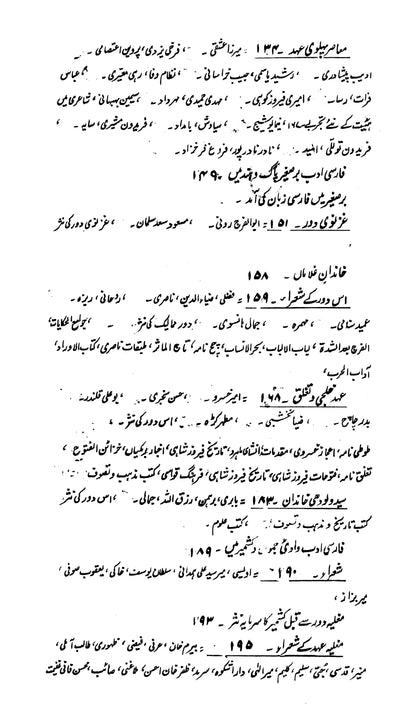 معاصر پہلوی عہد ـ ۱۳۴ = میرزا عشقی ـ ، فرخی یزدی، پروین اعتصامی ـ
ادیب پیشاوری ـ رشید یاسمی، حبیب خراسانی ـ ، نظام وفا، رہی معیری ـ ، عباس
فرات، رسا ـ امیری فیروز کوہی، مہدی حمیدی، مہرداد ـ سیمین بہبہانی، شاعری میں
ہیئت کے نئے تجربے ۱۷۷، نیما یوشیج ـ ، سیاوش، بامداد ـ ، فریدون مشیری، سایہ ـ ،
فریدون توللی، امید ـ نادر نادر پور، فروغ فرخزاد ـ
فارسی ادب برصغیر پاک و ہند میں ۱۴۹
برصغیر میں فارسی زبان کی آمد ـ
غزنوی دور ـ ۱۵۱ = ابوالفرج رونی ـ ، مسعود سعد سلمان ـ ، غزنوی دور کی نثر
خاندان غلاماں ـ ۱۵۸
اس دور کے شعراء ـ ۱۵۹ = فضلی، ضیاء الدین، ناصری ـ ، روحانی، ریزہ ـ
عمید سنامی ـ مہمرہ ـ جمال ہانسوی ـ ، دور ممالیک کی نثر ـ ، جوامع الحکایات،
الفرج بعد الشدۃ ، لباب الالباب، بحر الانساب، چچ نامہ، تاج المآثر، طبقات ناصری، کتاب الاوراد،
آداب الحرب،
عہد خلجی و تغلق ـ ۱۶۸ = امیر خسرو ـ ، حسن سنجری ـ ، بو علی قلندر
بدر چاچ ـ ، ضیا نخشبی ـ ، مطہر کڑہ ـ ، اس دور کی نثر ـ ،
طوطی نامہ، اعجاز خسروی، مقدمات، انشای ماہرو، تاریخ فیروز شاہی، اخبار برمکیاں، خزائن الفتوح،
تغلق نامہ، فتوحات فیروز شاہی، تاریخ فیروز شاہی، فرہنگ قواسی، کتب مذہب و تصوف
سید و لودھی خاندان ـ ۱۸۳ = بابری، برہمن، رزق اللہ، جمالی ـ ، اس دور کی نثر
کتب تاریخ و مذہب و تصوف ، کتب علوم ـ
فارسی ادب وادی جموں و کشمیر میں ـ ۱۸۹
شعراء ـ ۱۹۰ = ادیسی، میر سید علی ہمدانی، سلطان یوسف، خاکی، یعقوب صوفی،
میر بزاز،
مغلیہ دور سے قبل کشمیر کا سرمایہ نثر ـ ۱۹۳
مغلیہ عہد کے شعراء ـ ۱۹۵ = بیرم خان، عرفی، فیضی، ظہوری، طالب آملی،
منیر، قدسی، سلیم، کلیم، میر الٰہی، داراشکوہ، سرمد، ظفر خان احسن، طاغنی، صائب، محسن فانی، غنیمت